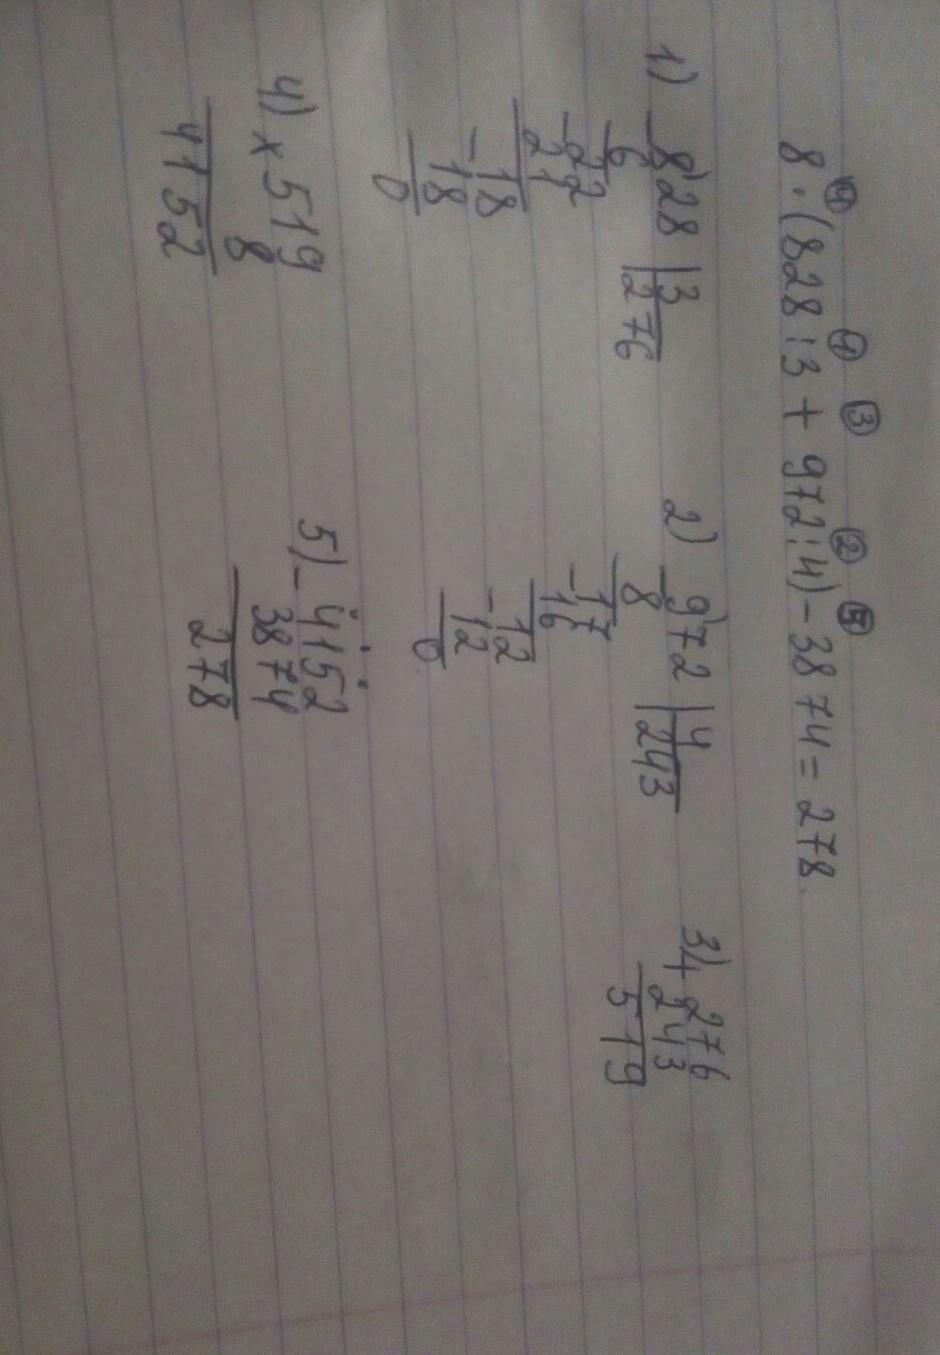 ④ ① ③ ② ⑤
8 · (828 : 3 + 972 : 4) - 3874 = 278.
1) - 828 | 3
6 276
- 22
21
- 18
18
0
2) - 972 | 4
8 243
- 17
16
- 12
12
0
3) + 276
243
519
4) x 519
8
4152
5) - 4152
3874
278